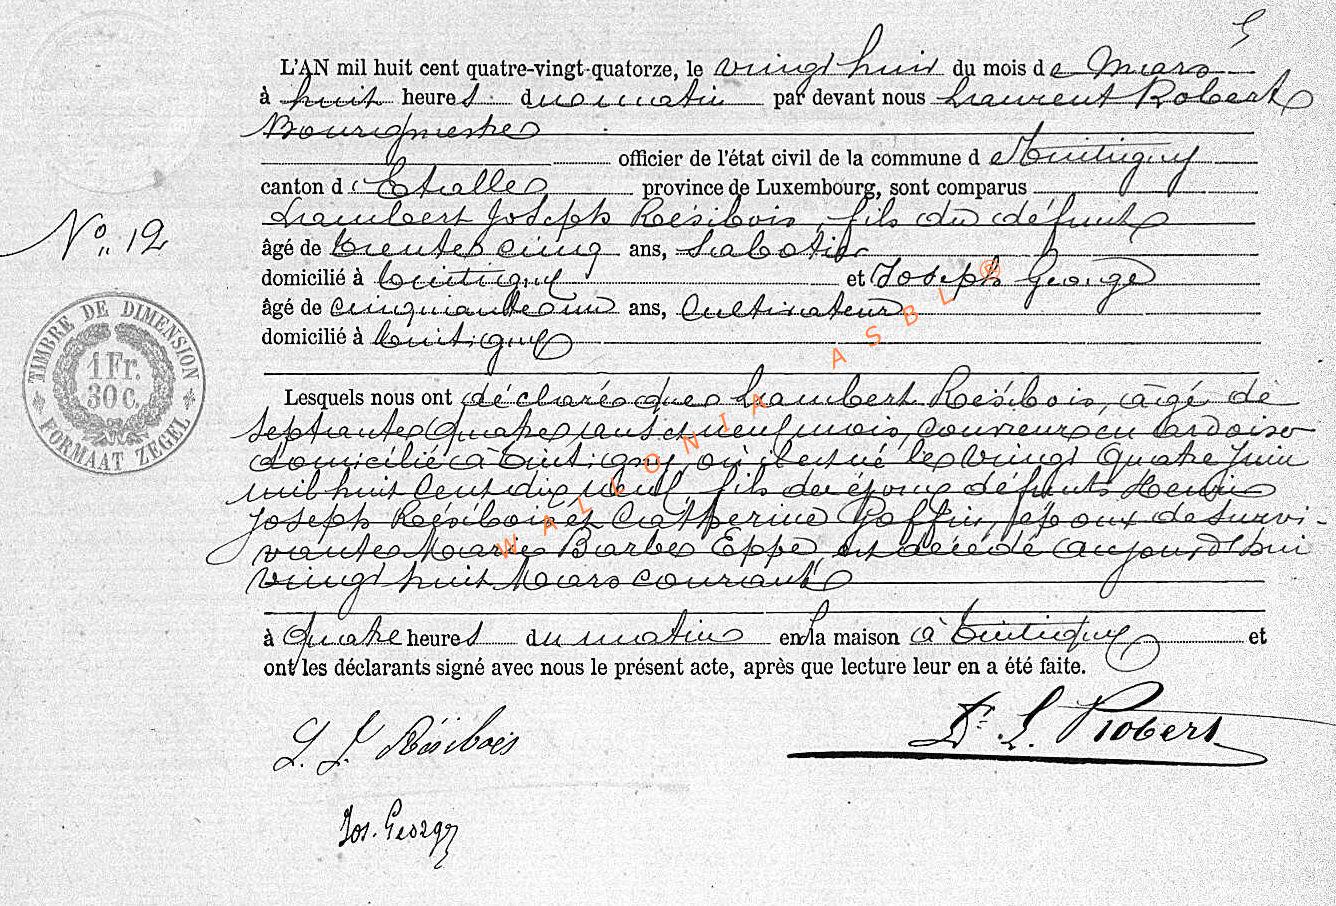 5
L'AN mil huit cent quatre-vingt-quatorze, le vingt huit du mois de Mars
à huit heures du matin par devant nous Laurent Robert
Bourgmestre
officier de l'état civil de la commune de Tintigny
canton d'Etalle province de Luxembourg, sont comparus
Lambert Joseph Résibois, fils du défunt
No. 12
âgé de trente cinq ans, Sabotier
domicilié à Tintigny et Joseph George
âgé de cinquante un ans, Cultivateur
domicilié à Tintigny
TIMBRE DE DIMENSION
1 Fr.
30 C.
FORMAAT ZEGEL
Lesquels nous ont déclaré que Lambert Résibois, âgé de
septante quatre ans et neuf mois, couvreur en ardoises
domicilié à Tintigny, où il est né le vingt quatre Juin
mil huit cent dix neuf, fils des époux défunts Henri
Joseph Résibois et Catherine Goffin, époux de survi-
vante Marie Barbe Eppe, est décédé aujourd'hui
vingt huit Mars courant
à quatre heures du matin en la maison à Tintigny et
ont les déclarants signé avec nous le présent acte, après que lecture leur en a été faite.
L. J. Résibois
Dr. L. Robert
Jos. George
WALLONIA ASBL ®